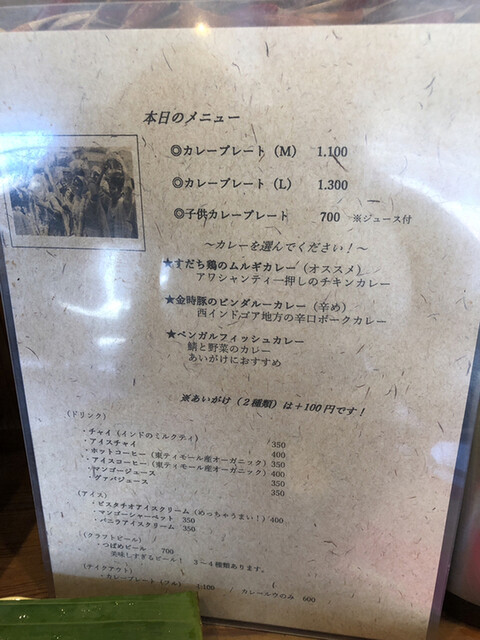 本日のメニュー
◎カレープレート（M） 1.100
◎カレープレート（L） 1.300
◎子供カレープレート 700 ※ジュース付
～カレーを選んでください！～
★すだち鶏のムルギカレー（オススメ）
アワシャンティー押しのチキンカレー
★金時豚のビンダルーカレー（辛め）
西インドゴア地方の辛口ポークカレー
★ベンガルフィッシュカレー
鯖と野菜のカレー
あいがけにおすすめ
※あいがけ（２種類）は＋100円です！
（ドリンク）
・チャイ（インドのミルクティ） 350
・アイスチャイ 400
・ホットコーヒー（東ティモール産オーガニック）350
・アイスコーヒー（東ティモール産オーガニック）400
・マンゴージュース 350
・グァバジュース 350
（アイス）
・ピスタチオアイスクリーム（めっちゃうまい！）400
・マンゴーシャーベット 350
・バニラアイスクリーム 350
（クラフトビール）
・つばめビール 700
美味しすぎるビール！ ３～４種類あります。
（テイクアウト）
・カレープレート（フル） 1.100 / カレールウのみ 600